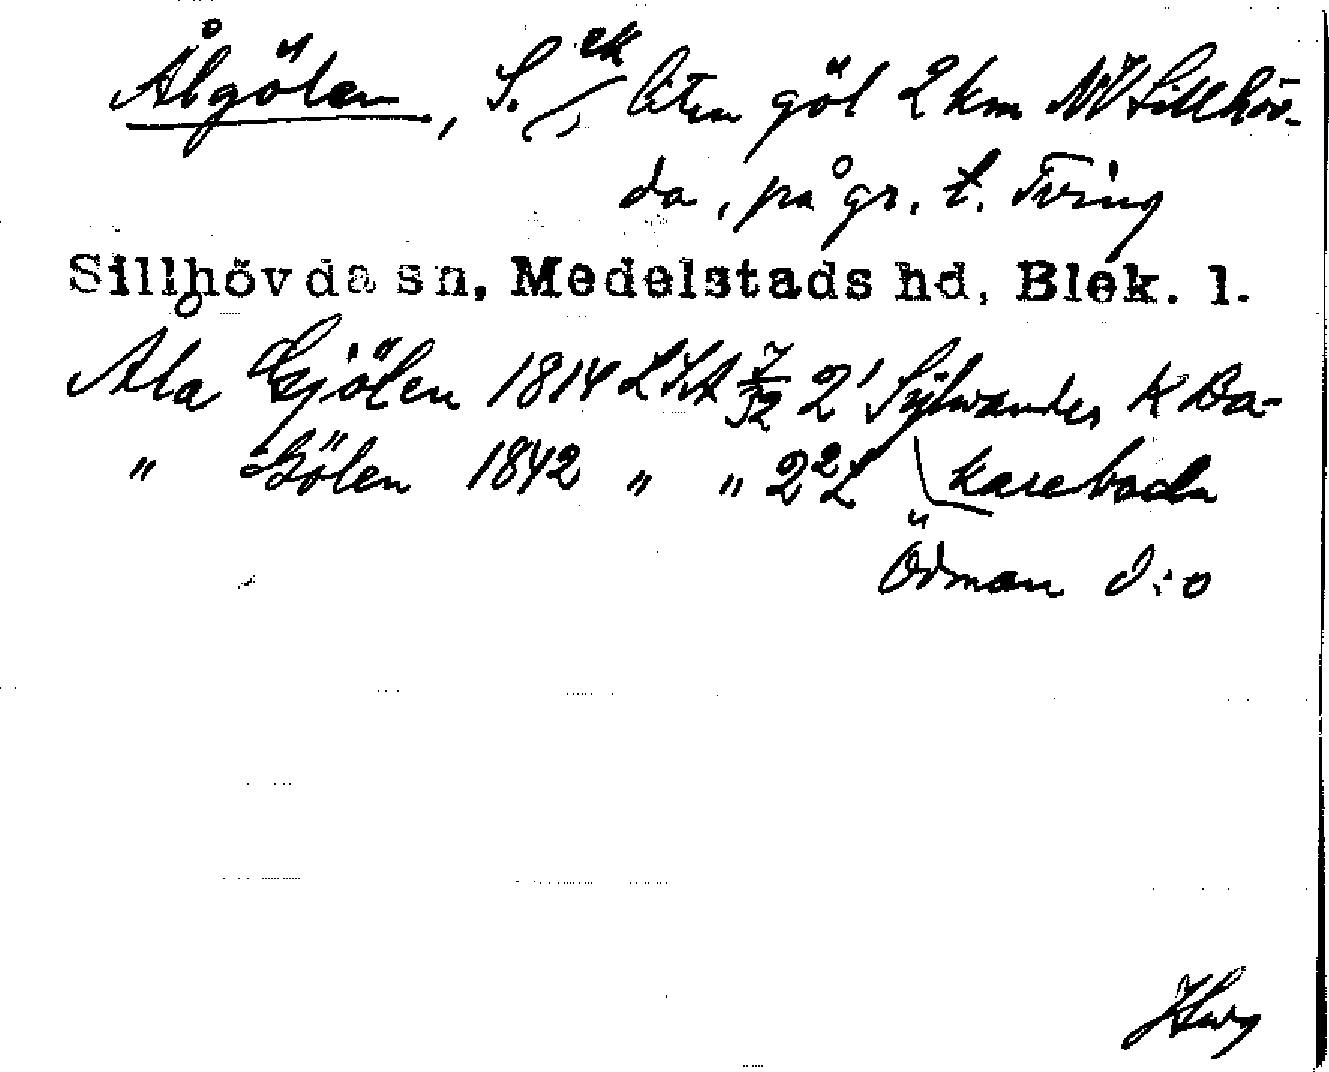 Ålgölen, S. ek liten göl 2 km NV Sillhöv-
da, på gr. t. Tving
Sillhövda sn, Medelstads hd, Blek. l.
Åla Gjölen 1814 LSA 7/32 2' Sylvander K Ba-
" Gölen 1842 " " 22L kareboda
Ödman d:o